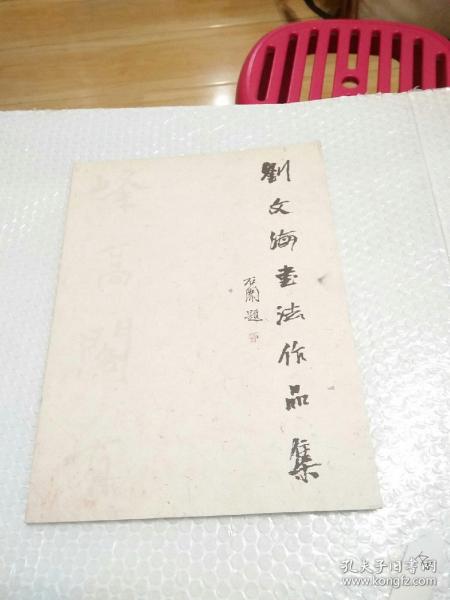 劉文海書法作品集
石開題
孔夫子旧书网
www.kongfz.com